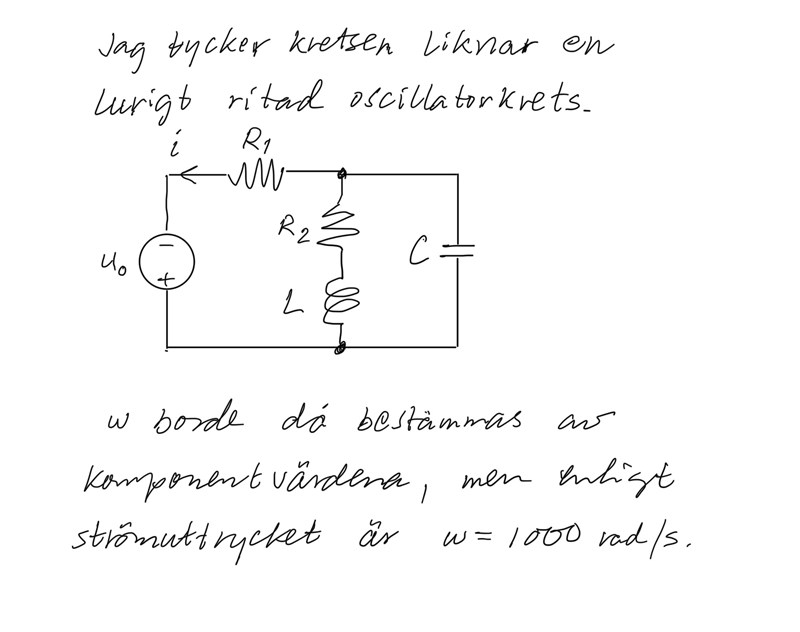 Jag tycker kretsen liknar en
lurigt ritad oscillatorkrets.
i R₁
R₂
u₀ - + L C
w borde då bestämmas av
komponentvärdena, men enligt
strömuttrycket är w = 1000 rad/s.